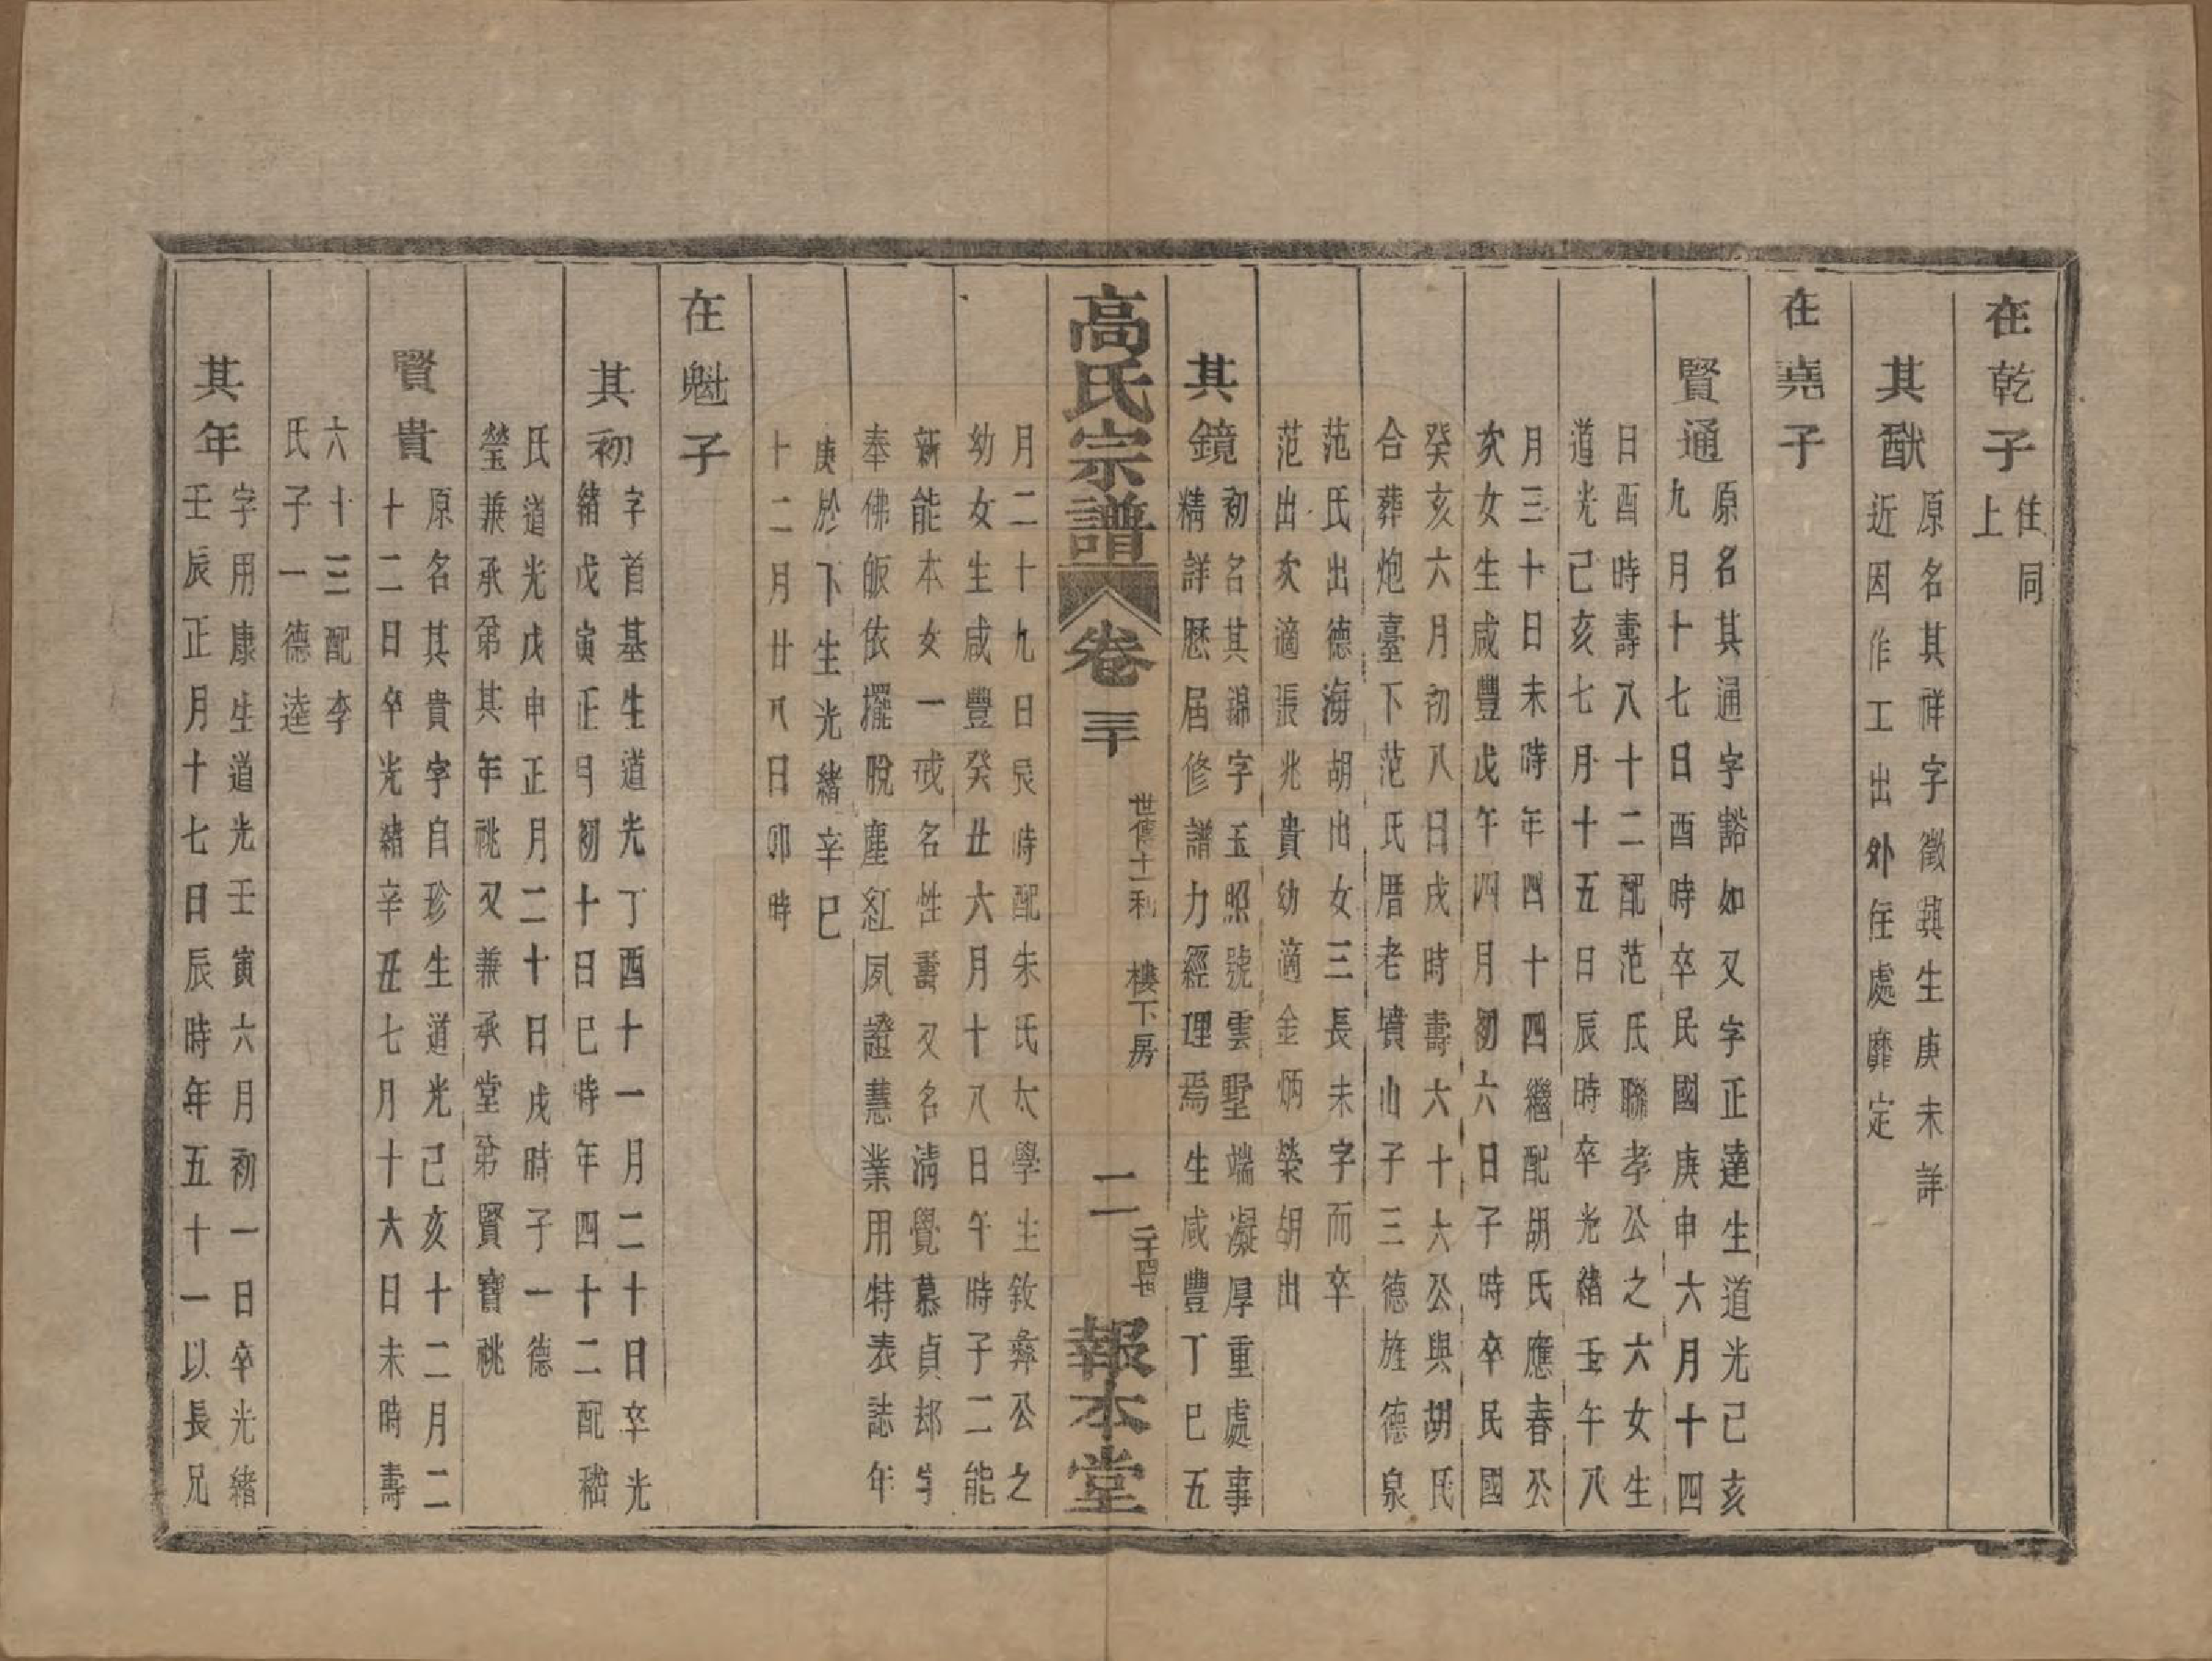 在乾子 住同
上
其猷 原名其祥字徵興生庚未詳
近因作工出外住處靡定
在堯子
賢通 原名其通字豁如又字正達生道光己亥
九月十七日酉時卒民國庚申六月十四
日酉時壽八十二配范氏聯孝公之六女生
道光己亥七月十五日辰時卒光緒壬午八
月三十日未時年四十四繼配胡氏應春公
次女生咸豐戊午四月初六日子時卒民國
癸亥六月初八日戌時壽六十六公與胡氏
合葬炮臺下范氏厝老墳山子三德旌德泉
范氏出德海胡出女三長未字而卒
范出次適張兆貴幼適金炳榮胡出
其鏡 初名其錦字玉照號雲墅端凝厚重處事
精詳歷屆修譜力經理焉生咸豐丁巳五
高氏宗譜 卷三十 世傳十一利 樓下房 二 二十四世 報本堂
月二十九日辰時配朱氏太學生敘彝公之
幼女生咸豐癸丑六月十八日午時子二能
新能本女一戒名性壽又名清覺慕貞郄
奉佛皈依擺脫塵紅夙證慧業用特表誌年
庚於下生光緒辛巳
十二月廿八日卯時
在魁子
其初 字首基生道光丁酉十一月二十日卒光
緒戊寅正月初十日巳時年四十二配嵇
氏道光戊申正月二十日戌時子一德
瑩兼承弟其年祧又兼承堂弟賢寶祧
賢貴 原名其貴字自珍生道光己亥十二月二
十二日卒光緒辛丑七月十六日未時壽
六十三配李
氏子一德逵
其年 字用康生道光壬寅六月初一日卒光緒
壬辰正月十七日辰時年五十一以長兄